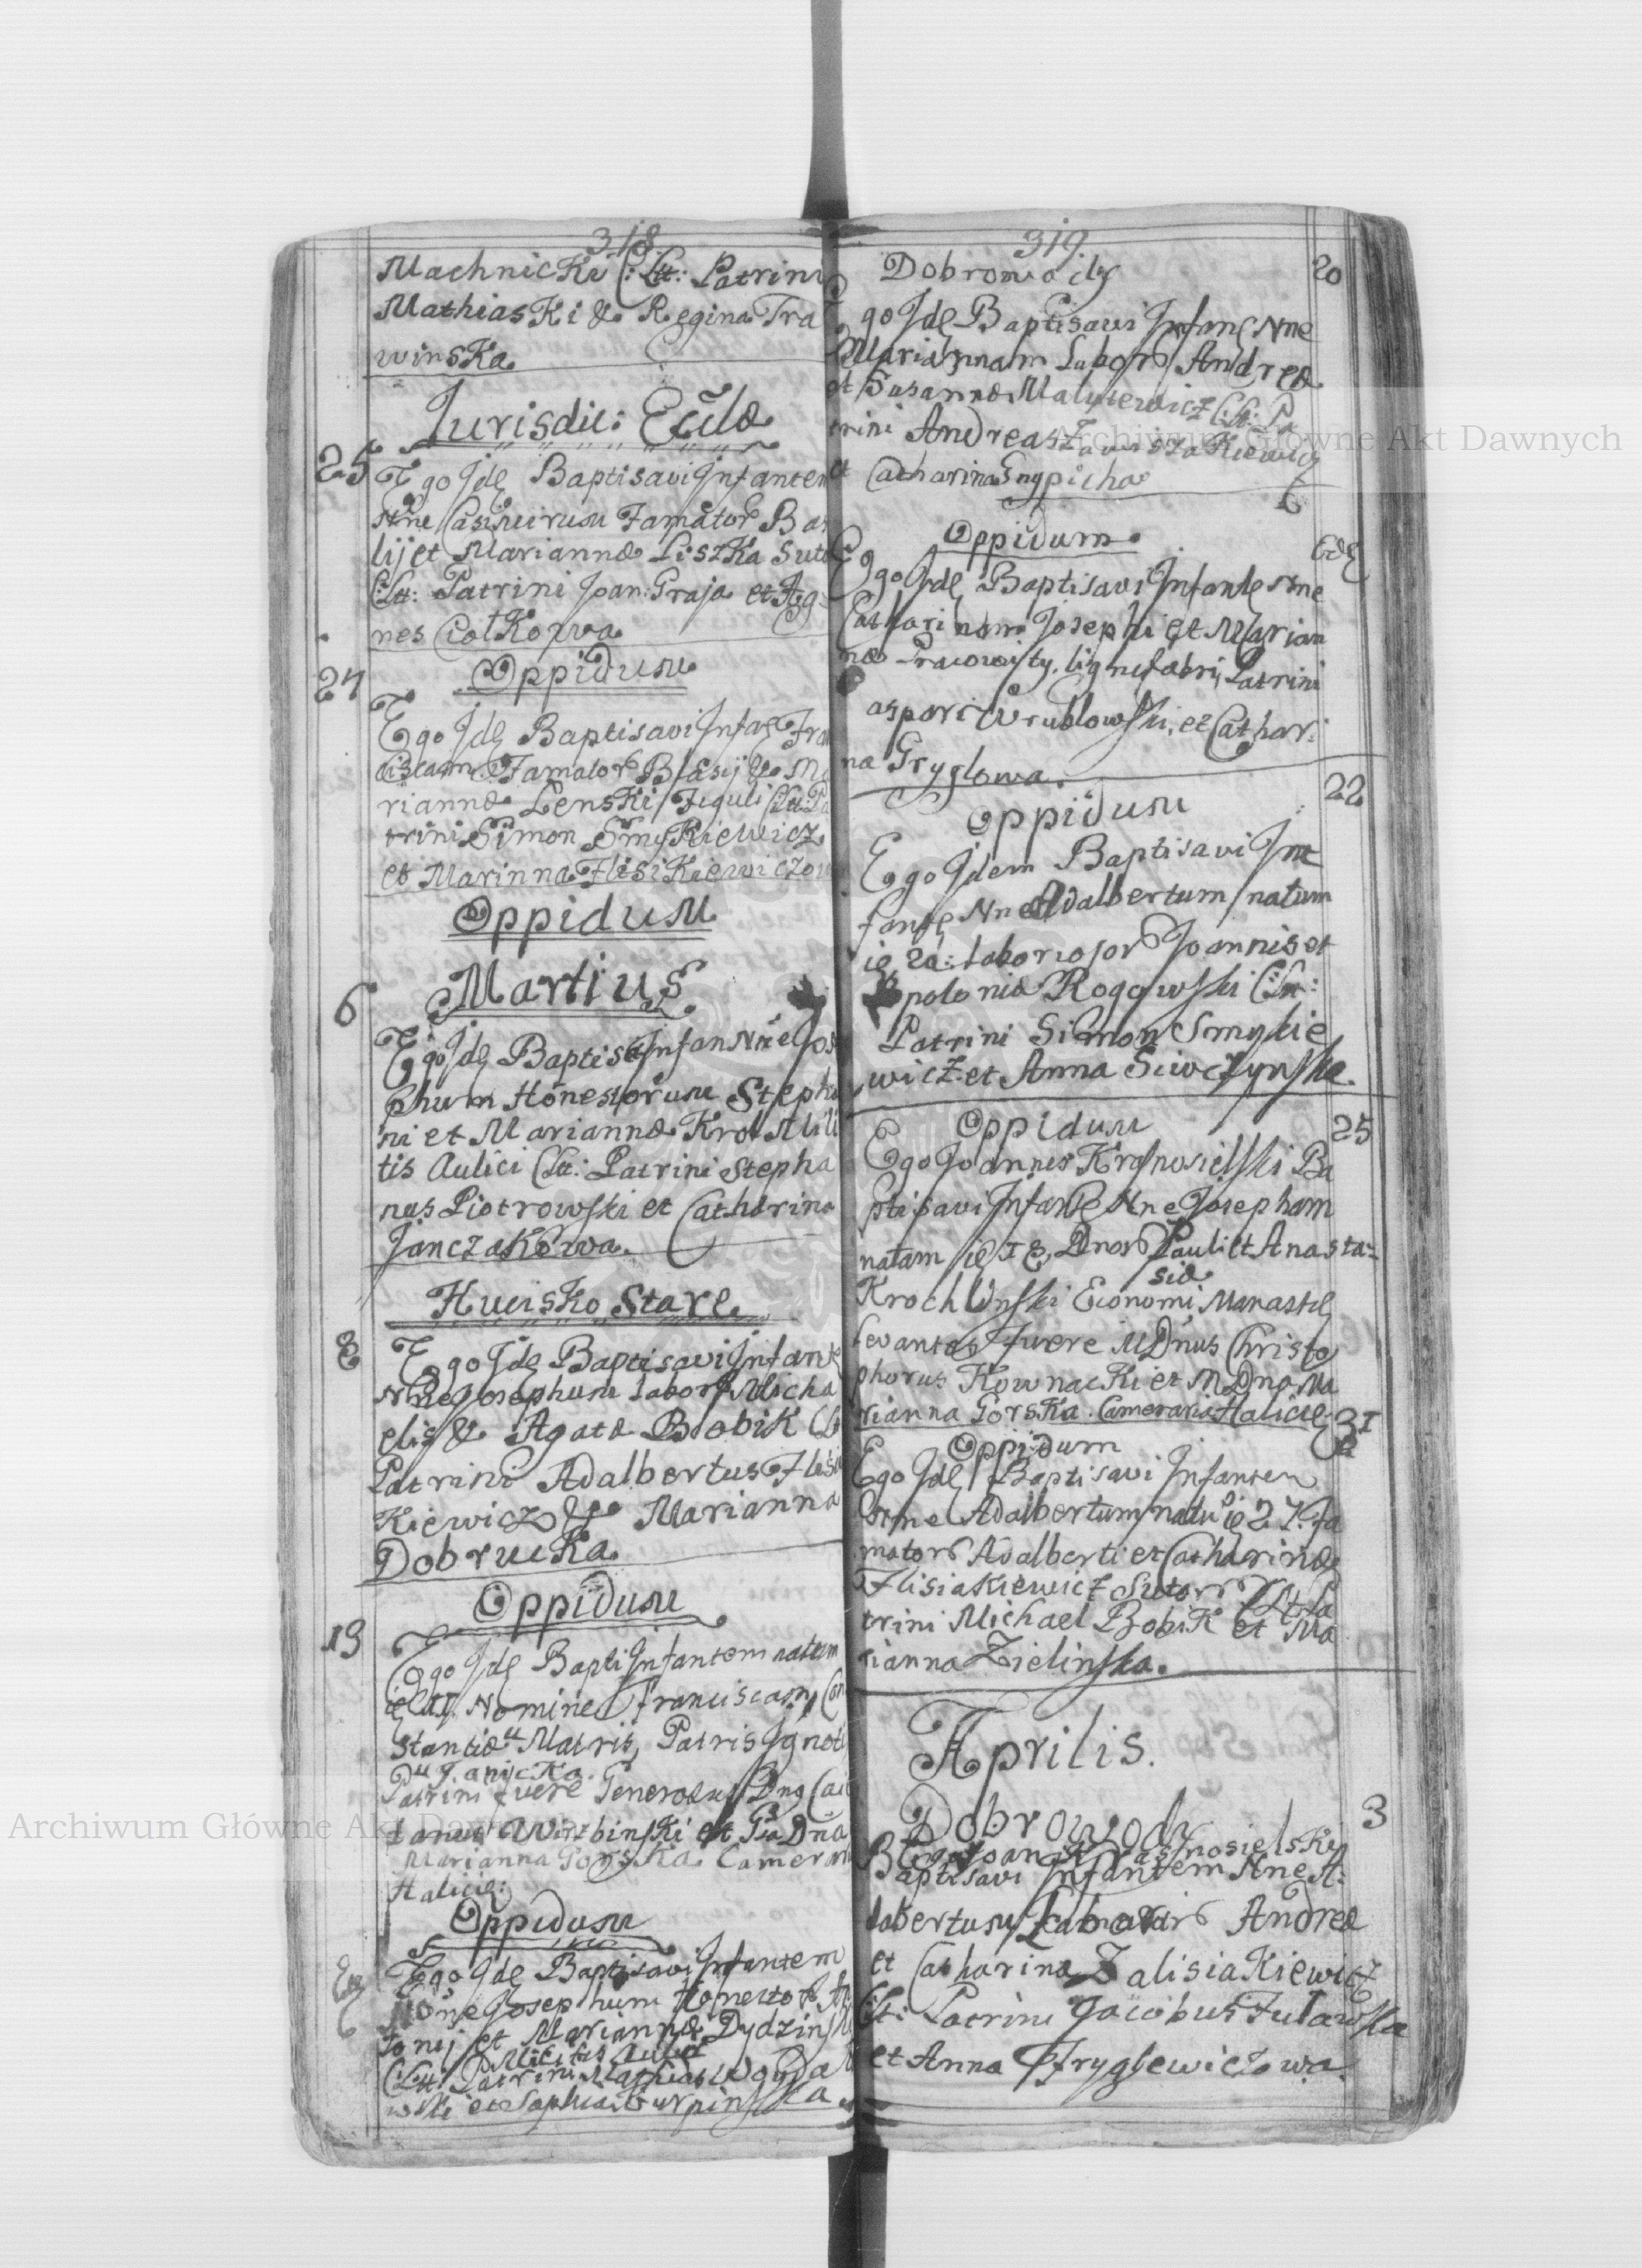 318
Machnicki (: Ltt: Patrini
Mathiaski & Regina Tra
winska
Iurisdic: Eccłae
25
Ego Idę Baptisavi Infantem
Nne Casimirum Famator Bas
lij et Mariannæ Liszka Suto
(Ltt: Patrini Joan: Graja et Ag
nes Ciołkowa
24
Oppidum
Ego Idę Baptisavi Infaę Fran
ciscam Famator Blasij & Ma
riannæ Lenski Figuli (Ltt: Pa
trini Simon Smykiewicz
et Marinna Flisikiewiczow
Oppidum
Martius
6
Ego Idę Baptisa Infan Nne Jos
phum Honestorum Stepha
ni et Mariannæ Krol Mili
tis Aulici (Ltt: Patrini Stepha
nus Piotrowski et Catharina
Janczakowa.
Hucisko Stare.
8
Ego Idę Baptisavi Infante
Nne Josephum labor Micha
elis & Agatæ Bobik (Lt
Patrini Adalbertus Flisia
Kiewicz & Marianna
Dobrucka
Oppidum
19
Ego Idę Bapti Infantem natam
Nomine Franciscam, Con
stantiæ Matris, Patris Ignoti
Patrini fuere Generosus Dnus Cai
tanus Wirzbinski et Gsa Dna
Marianna Gorska Camerari
Halicię:
Oppidum
Ego Idę Baptisavi Infantem
Nōne Josephum Honestor An
tonij et Mariannæ Dydzinski
Militis Aulici
(Ltt: Patrini Mathias Woyda
wski et Sophia Gurpinska
319.
Dobrowody
20
Ego Idę Baptisavi Infanę Nne
Mariannam Labor Andreæ
et Susannæ Malutewicz (Ltt: Pa
trini Andreas Zawiszakiewicz
et Catharina Snopicha
Oppidum
Edę
Ego Idę Baptisavi Infantę Nne
Catharinam Josephi et Marian
næ Pracowity. lignifabri, Patrini
aspari Wrublowski, et Cathari
na Gryglowa.
22
Oppidum
Ego Idem Baptisavi In
fantę Nne Adalbertum natum
ię 20: laboriosor Joannis et
Apoloniæ Rogowski (Ltt:
Patrini Simon Smykie
wicz et Anna Siwczynska.
25
Oppidum
Ego Joannes Krasnosielski Ba
ptisavi Infantę Nne Josepham
natam ię 18, Dnor Pauli et Anasta=
siæ
Krochlinski Economi Monastę
levantes fuere MDnus Christo
phorus Kownacki et M Dna Ma
rianna Gorska. Cameraria Halicię
31
Oppidum
Ego Idę Baptisavi Infantem
Nne Adalbertum natu ię 27. Fa
mator Adalberti et Catharinæ
Flisiakiewicz Sutor (Ltt Pa
trini Michael Bobik et Ma
rianna Zielinska.
Aprilis.
3
Dobrowody
Ego Joannes Krasnosielski
Baptisavi Infantem Nne A:
labertum Laborar Andreæ
et Catharinæ Zalisiakiewicz
Ltt: Patrini Jacobus Fulawska
et Anna Fryglewiczowa.
Archiwum Główne Akt Dawnych
Archiwum Główne Akt Dawnych